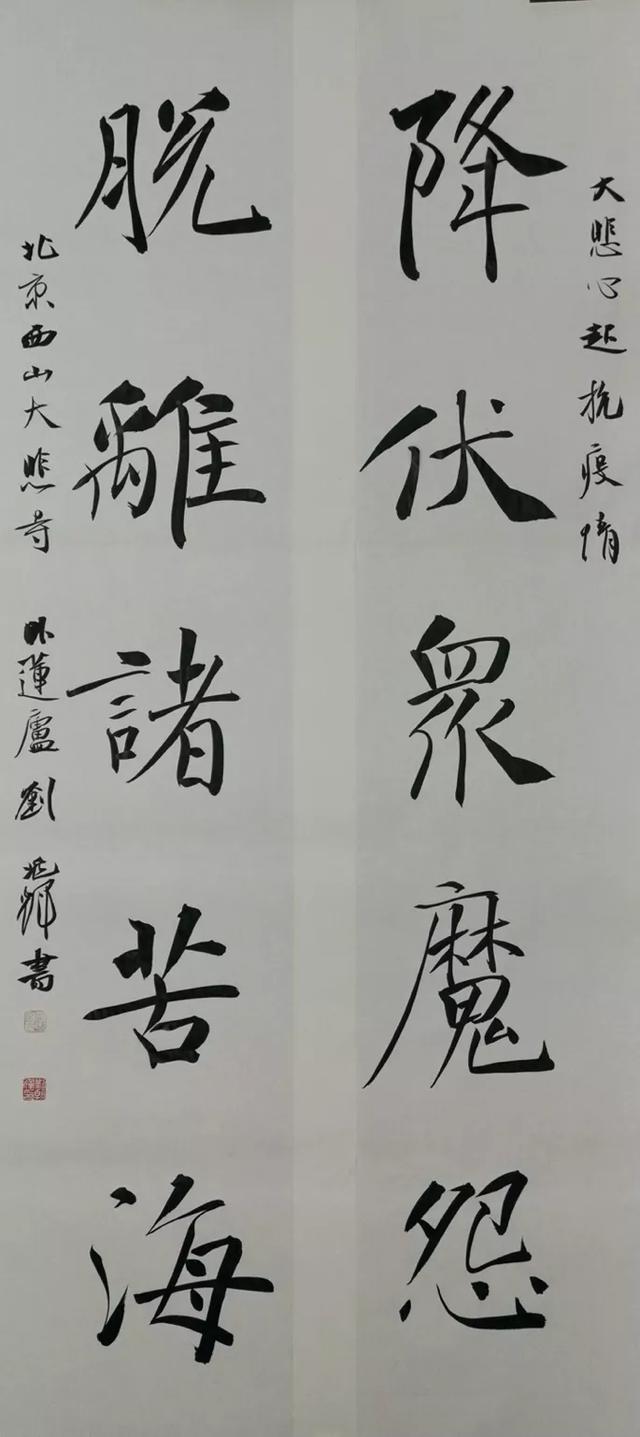 大悲心起抗疫情
降伏眾魔怨
脱離諸苦海
北京西山大悲寺 卧蓮廬劉兆輝書